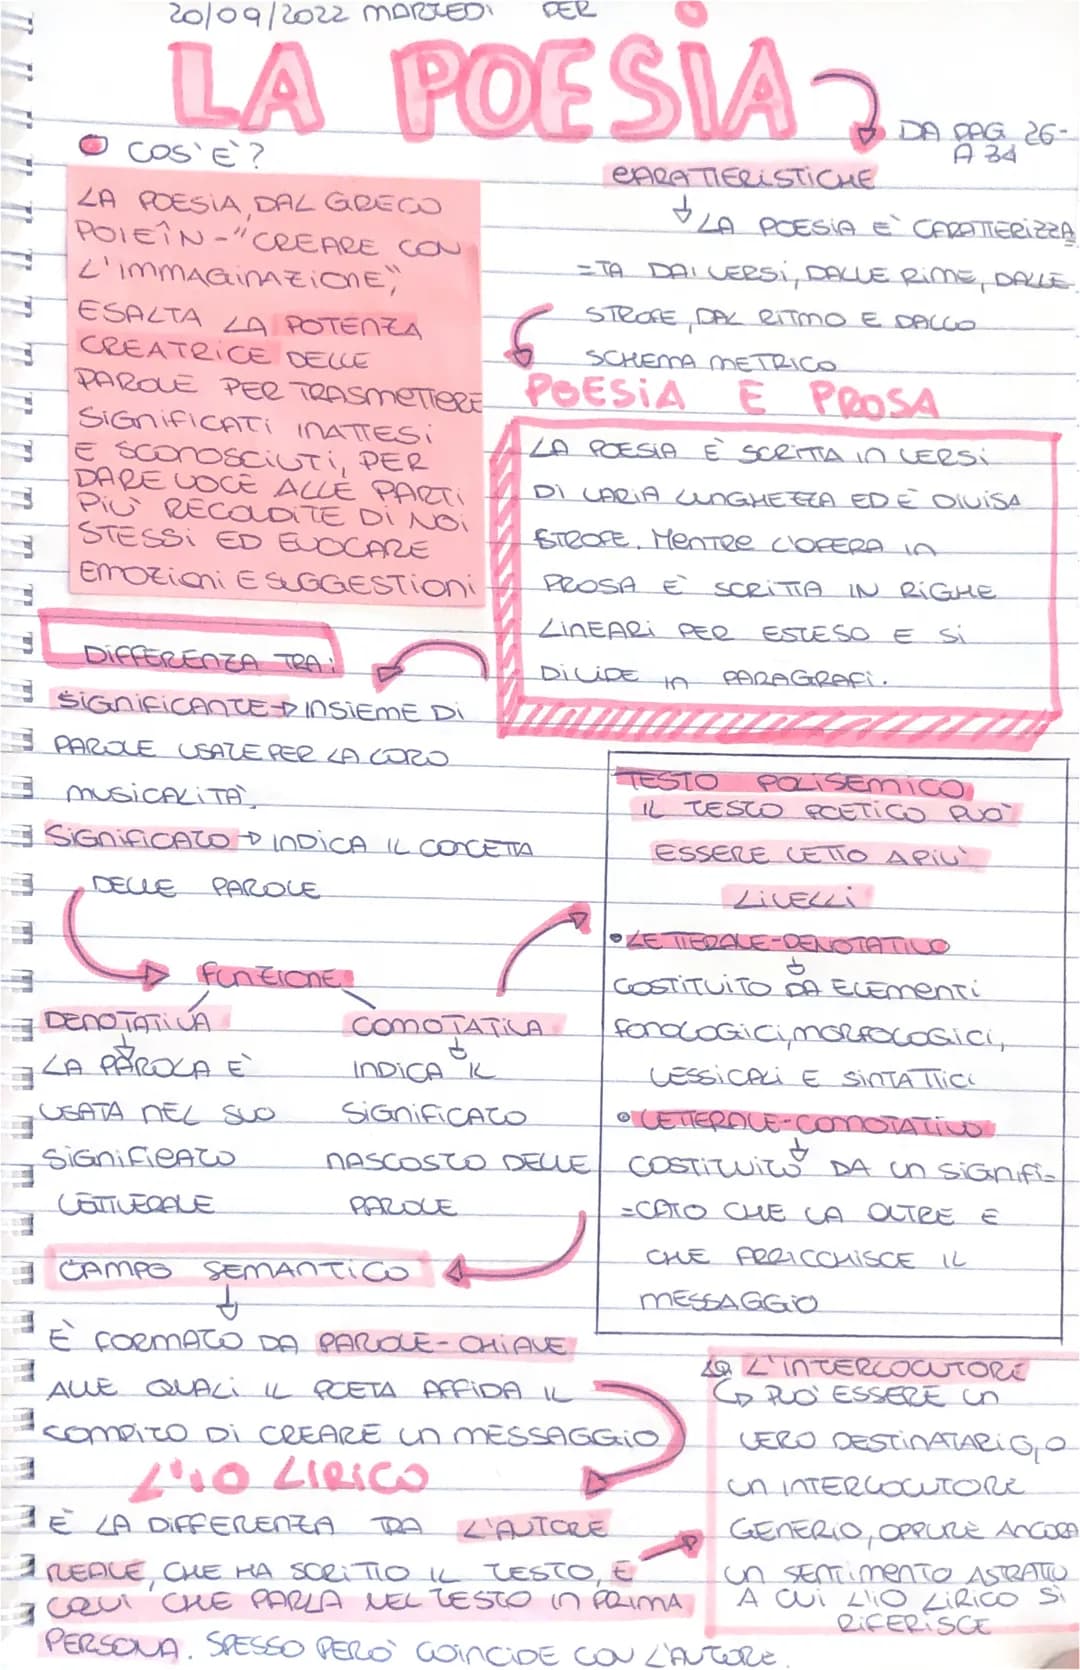 20/09/2022 MARTEDI PER
LA POESIA
DA PAG 26-
A 34
COS'È?
LA POESIA, DAL GRECO
POIEÎN-"CREARE CON
L'IMMAGINAZIONE",
ESALTA LA POTENZA
CREATRICE DELLE
PAROLE PER TRASMETTERE
SIGNIFICATI INATTESI
E SCONOSCIUTI, PER
DARE VOCE ALLE PARTI
PIÙ RECONDITE DI NOI
STESSI ED EVOCARE
EMOZIONI E SUGGESTIONI
CARATTERISTICHE
LA POESIA È CARATTERIZZA
=TA DAI VERSI, DALLE RIME, DALLE
STROFE, DAL RITMO E DALLO
SCHEMA METRICO
POESIA E PROSA
LA POESIA È SCRITTA IN VERSI
DI VARIA LUNGHEZZA ED È DIVISA
STROFE. MENTRE L'OPERA IN
PROSA È SCRITTA IN RIGHE
LINEARI PER ESTESO E SI
DIVIDE IN PARAGRAFI.
DIFFERENZA TRA:
SIGNIFICANTE → INSIEME DI
PAROLE USATE PER LA LORO
MUSICALITÀ
SIGNIFICATO → INDICA IL CONCETTO
DELLE PAROLE
FUNZIONE
DENOTATIVA
LA PAROLA È
USATA NEL SUO
SIGNIFICATO
LETTERALE
CONOTATIVA
INDICA IL
SIGNIFICATO
NASCOSTO DELLE
PAROLE
TESTO POLISEMICO
IL TESTO POETICO PUÒ
ESSERE LETTO A PIÙ
LIVELLI
• LETTERALE-DENOTATIVO
COSTITUITO DA ELEMENTI
FONOLOGICI, MORFOLOGICI,
LESSICALI E SINTATTICI
• LETTERALE-CONOTATIVO
COSTITUITO DA UN SIGNIFI=
=CATO CHE VA OLTRE E
CHE ARRICCHISCE IL
MESSAGGIO
CAMPO SEMANTICO
È FORMATO DA PAROLE-CHIAVE
ALLE QUALI IL POETA AFFIDA IL
COMPITO DI CREARE UN MESSAGGIO
L'IO LIRICO
È LA DIFFERENZA TRA L'AUTORE
REALE, CHE HA SCRITTO IL TESTO, E
COLUI CHE PARLA NEL TESTO IN PRIMA
PERSONA. SPESSO PERÒ COINCIDE CON L'AUTORE.
L'INTERLOCUTORE
PUÒ ESSERE UN
VERO DESTINATARIO, O
UN INTERLOCUTORE
GENERIO, OPPURE ANCORA
UN SENTIMENTO ASTRATTO
A CUI L'IO LIRICO SI
RIFERISCE